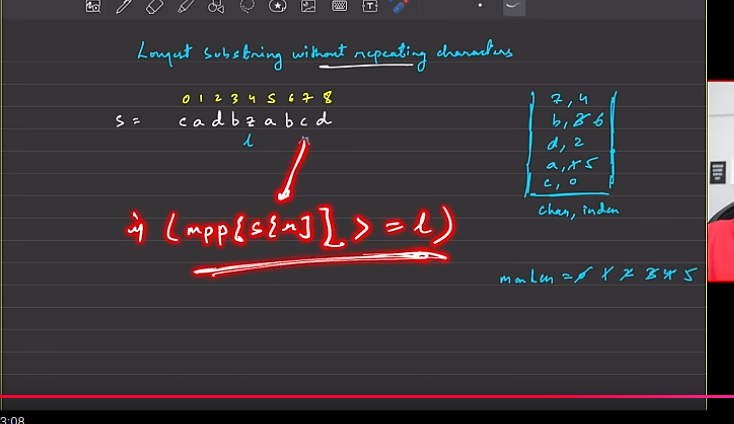 Longest Substring without repeating characters
0 1 2 3 4 5 6 7 8
s = c a d b z a b c d
l r
if (mpp[s[r]] >= l)
z, 4
b, 3 6
d, 2
a, 1 5
c, 0
char, index
maxLen = 0 1 2 3 4 5
3:08